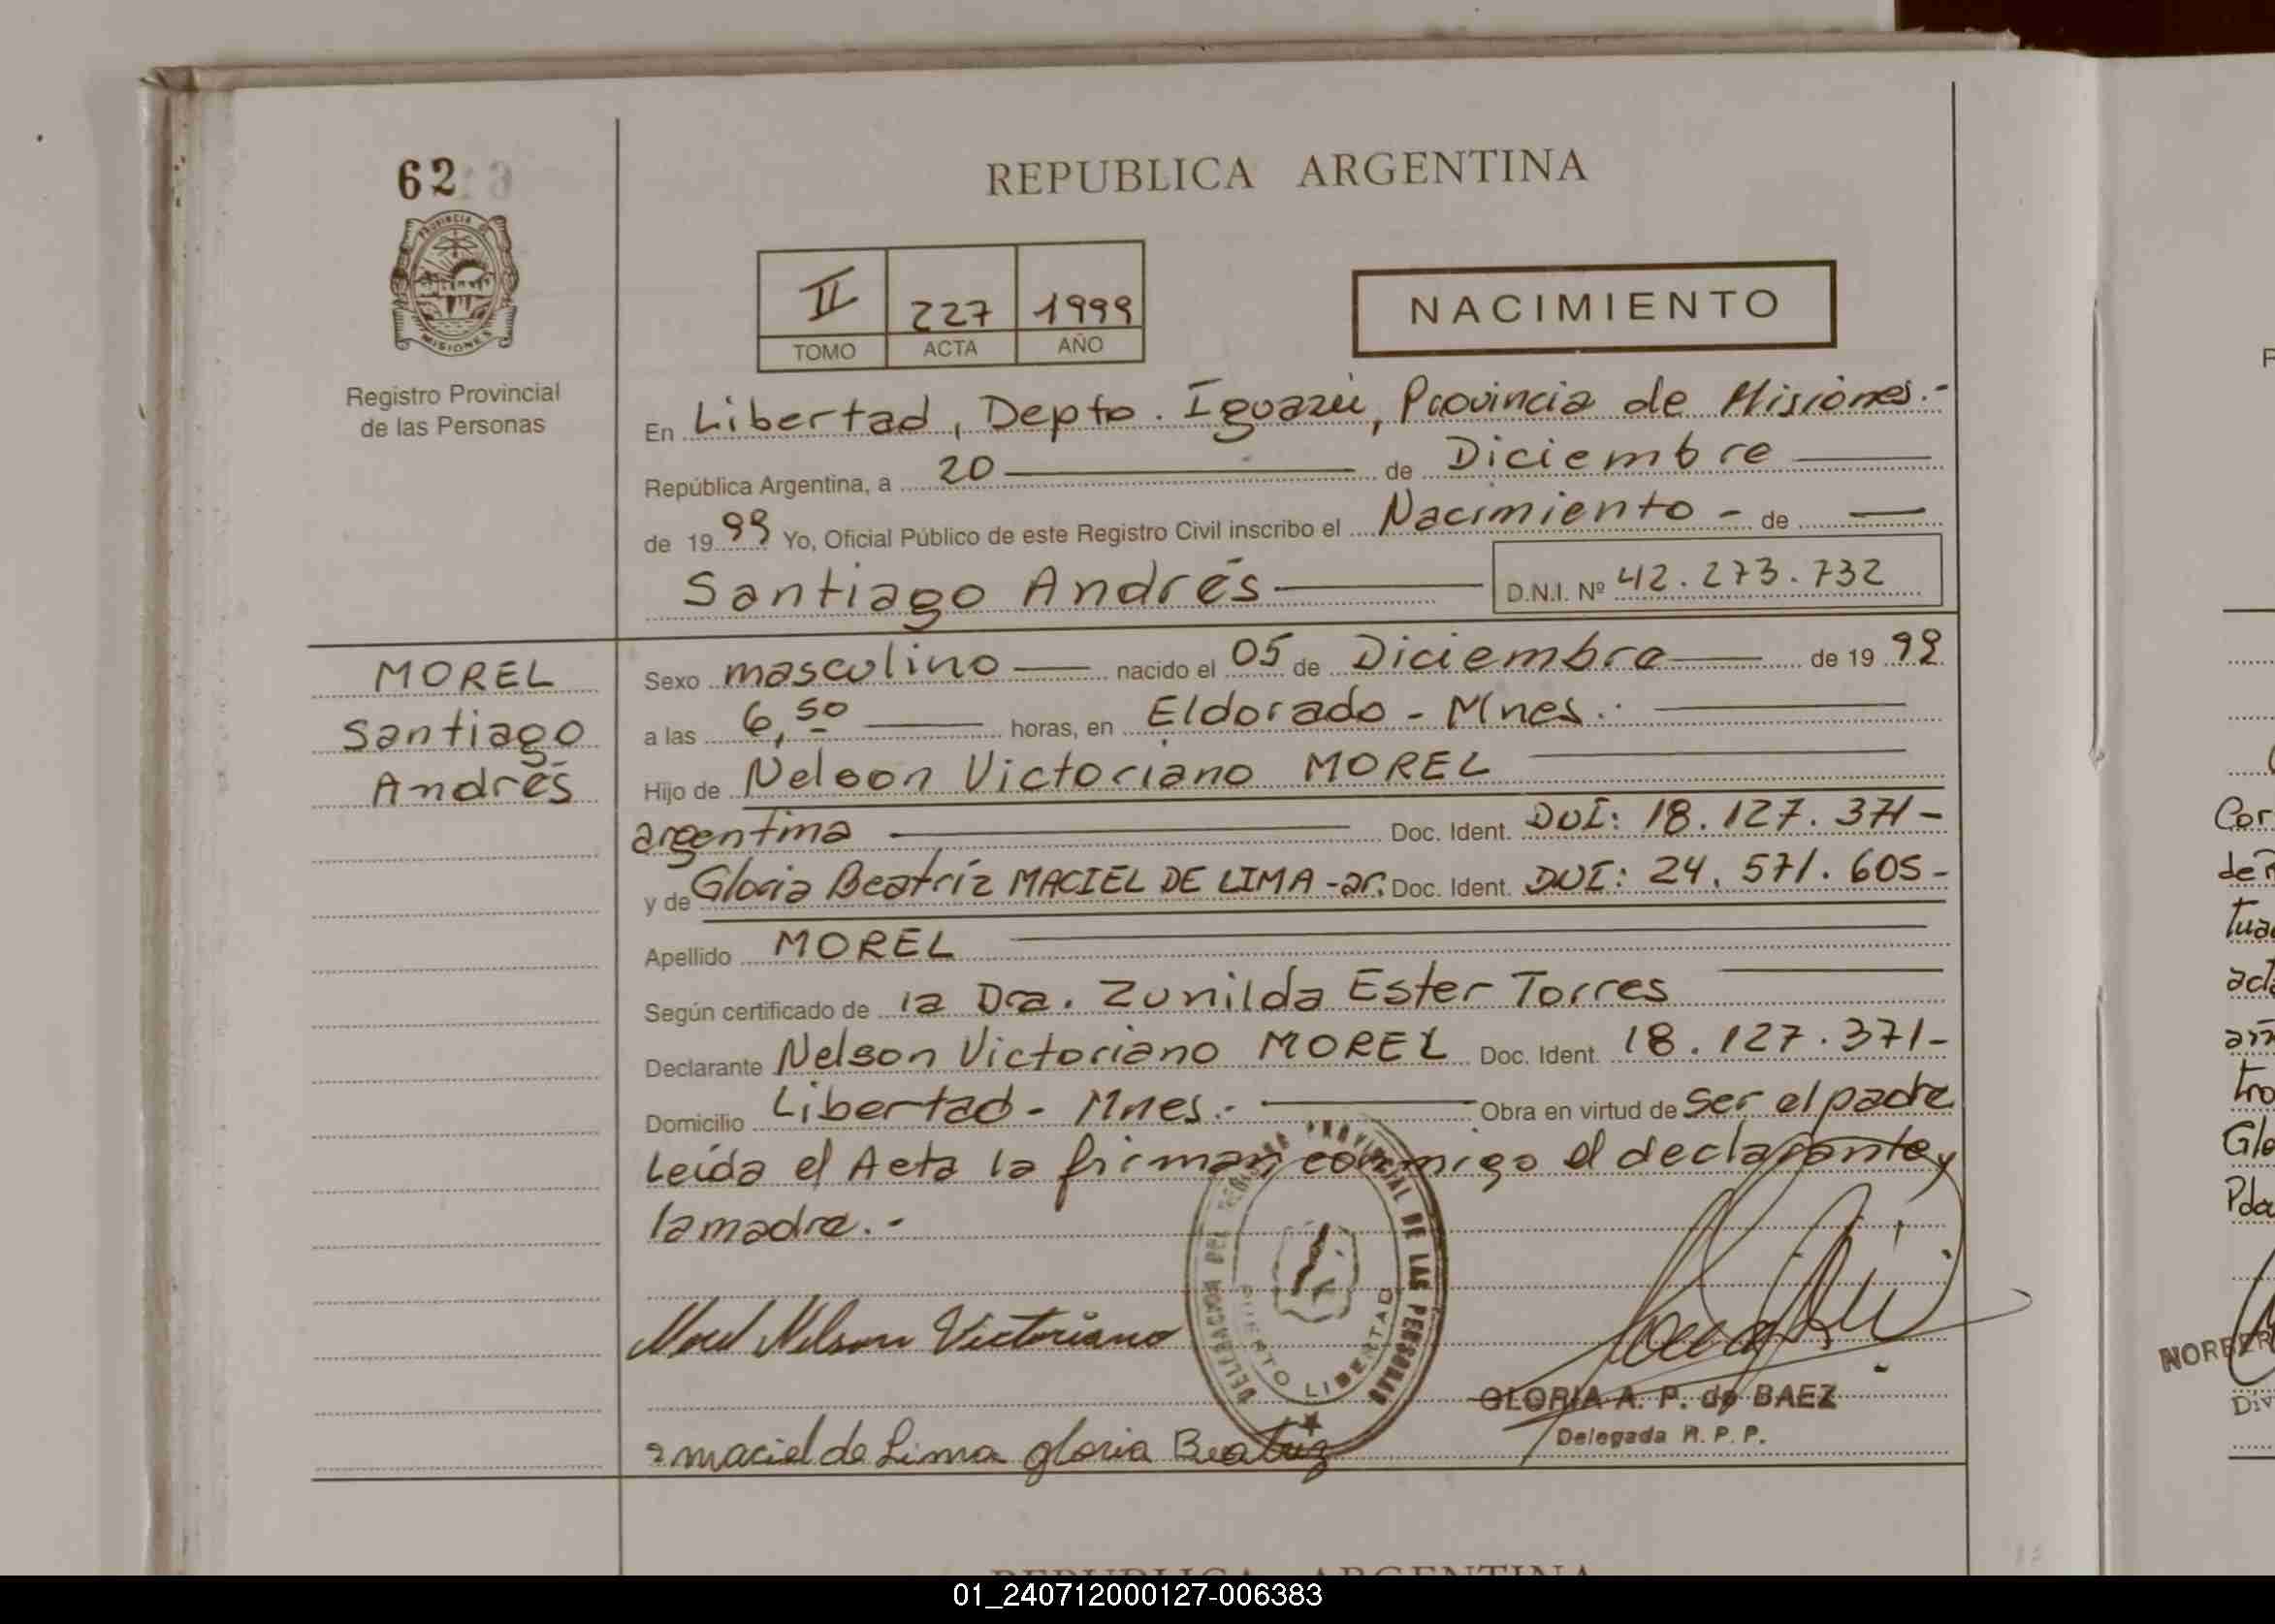 62
REPUBLICA ARGENTINA
PROVINCIA DE
MISIONES
Registro Provincial
de las Personas
II 227 1999
TOMO ACTA AÑO
NACIMIENTO
En Libertad, Depto. Iguazú, Provincia de Misiones.-
República Argentina, a 20 de Diciembre
de 1999 Yo, Oficial Público de este Registro Civil inscribo el Nacimiento - de
Santiago Andrés D.N.I. Nº 42.273.732
MOREL
Santiago
Andrés
Sexo masculino nacido el 05 de Diciembre de 1999
a las 6,50 horas, en Eldorado - Mnes.
Hijo de Nelson Victoriano MOREL
argentina Doc. Ident. DUI: 18.127.371-
y de Gloria Beatríz MACIEL DE LIMA - ar. Doc. Ident. DUI: 24.571.605-
Apellido MOREL
Según certificado de la Dra. Zunilda Ester Torres
Declarante Nelson Victoriano MOREL Doc. Ident. 18.127.371-
Domicilio Libertad - Mnes.- Obra en virtud de ser el padre
Leída el Acta la firman conmigo el declarante y
la madre.-
DELEGACION DEL REGISTRO PROVINCIAL DE LAS PERSONAS
PUERTO LIBERTAD
Morel Nelson Victoriano
GLORIA A. P. de BAEZ
Delegada R. P. P.
maciel de Lima gloria Beatriz
REPUBLICA ARGENTINA
Cor
tua
acta
tro
Glo
NORBER
Div
01_240712000127-006383